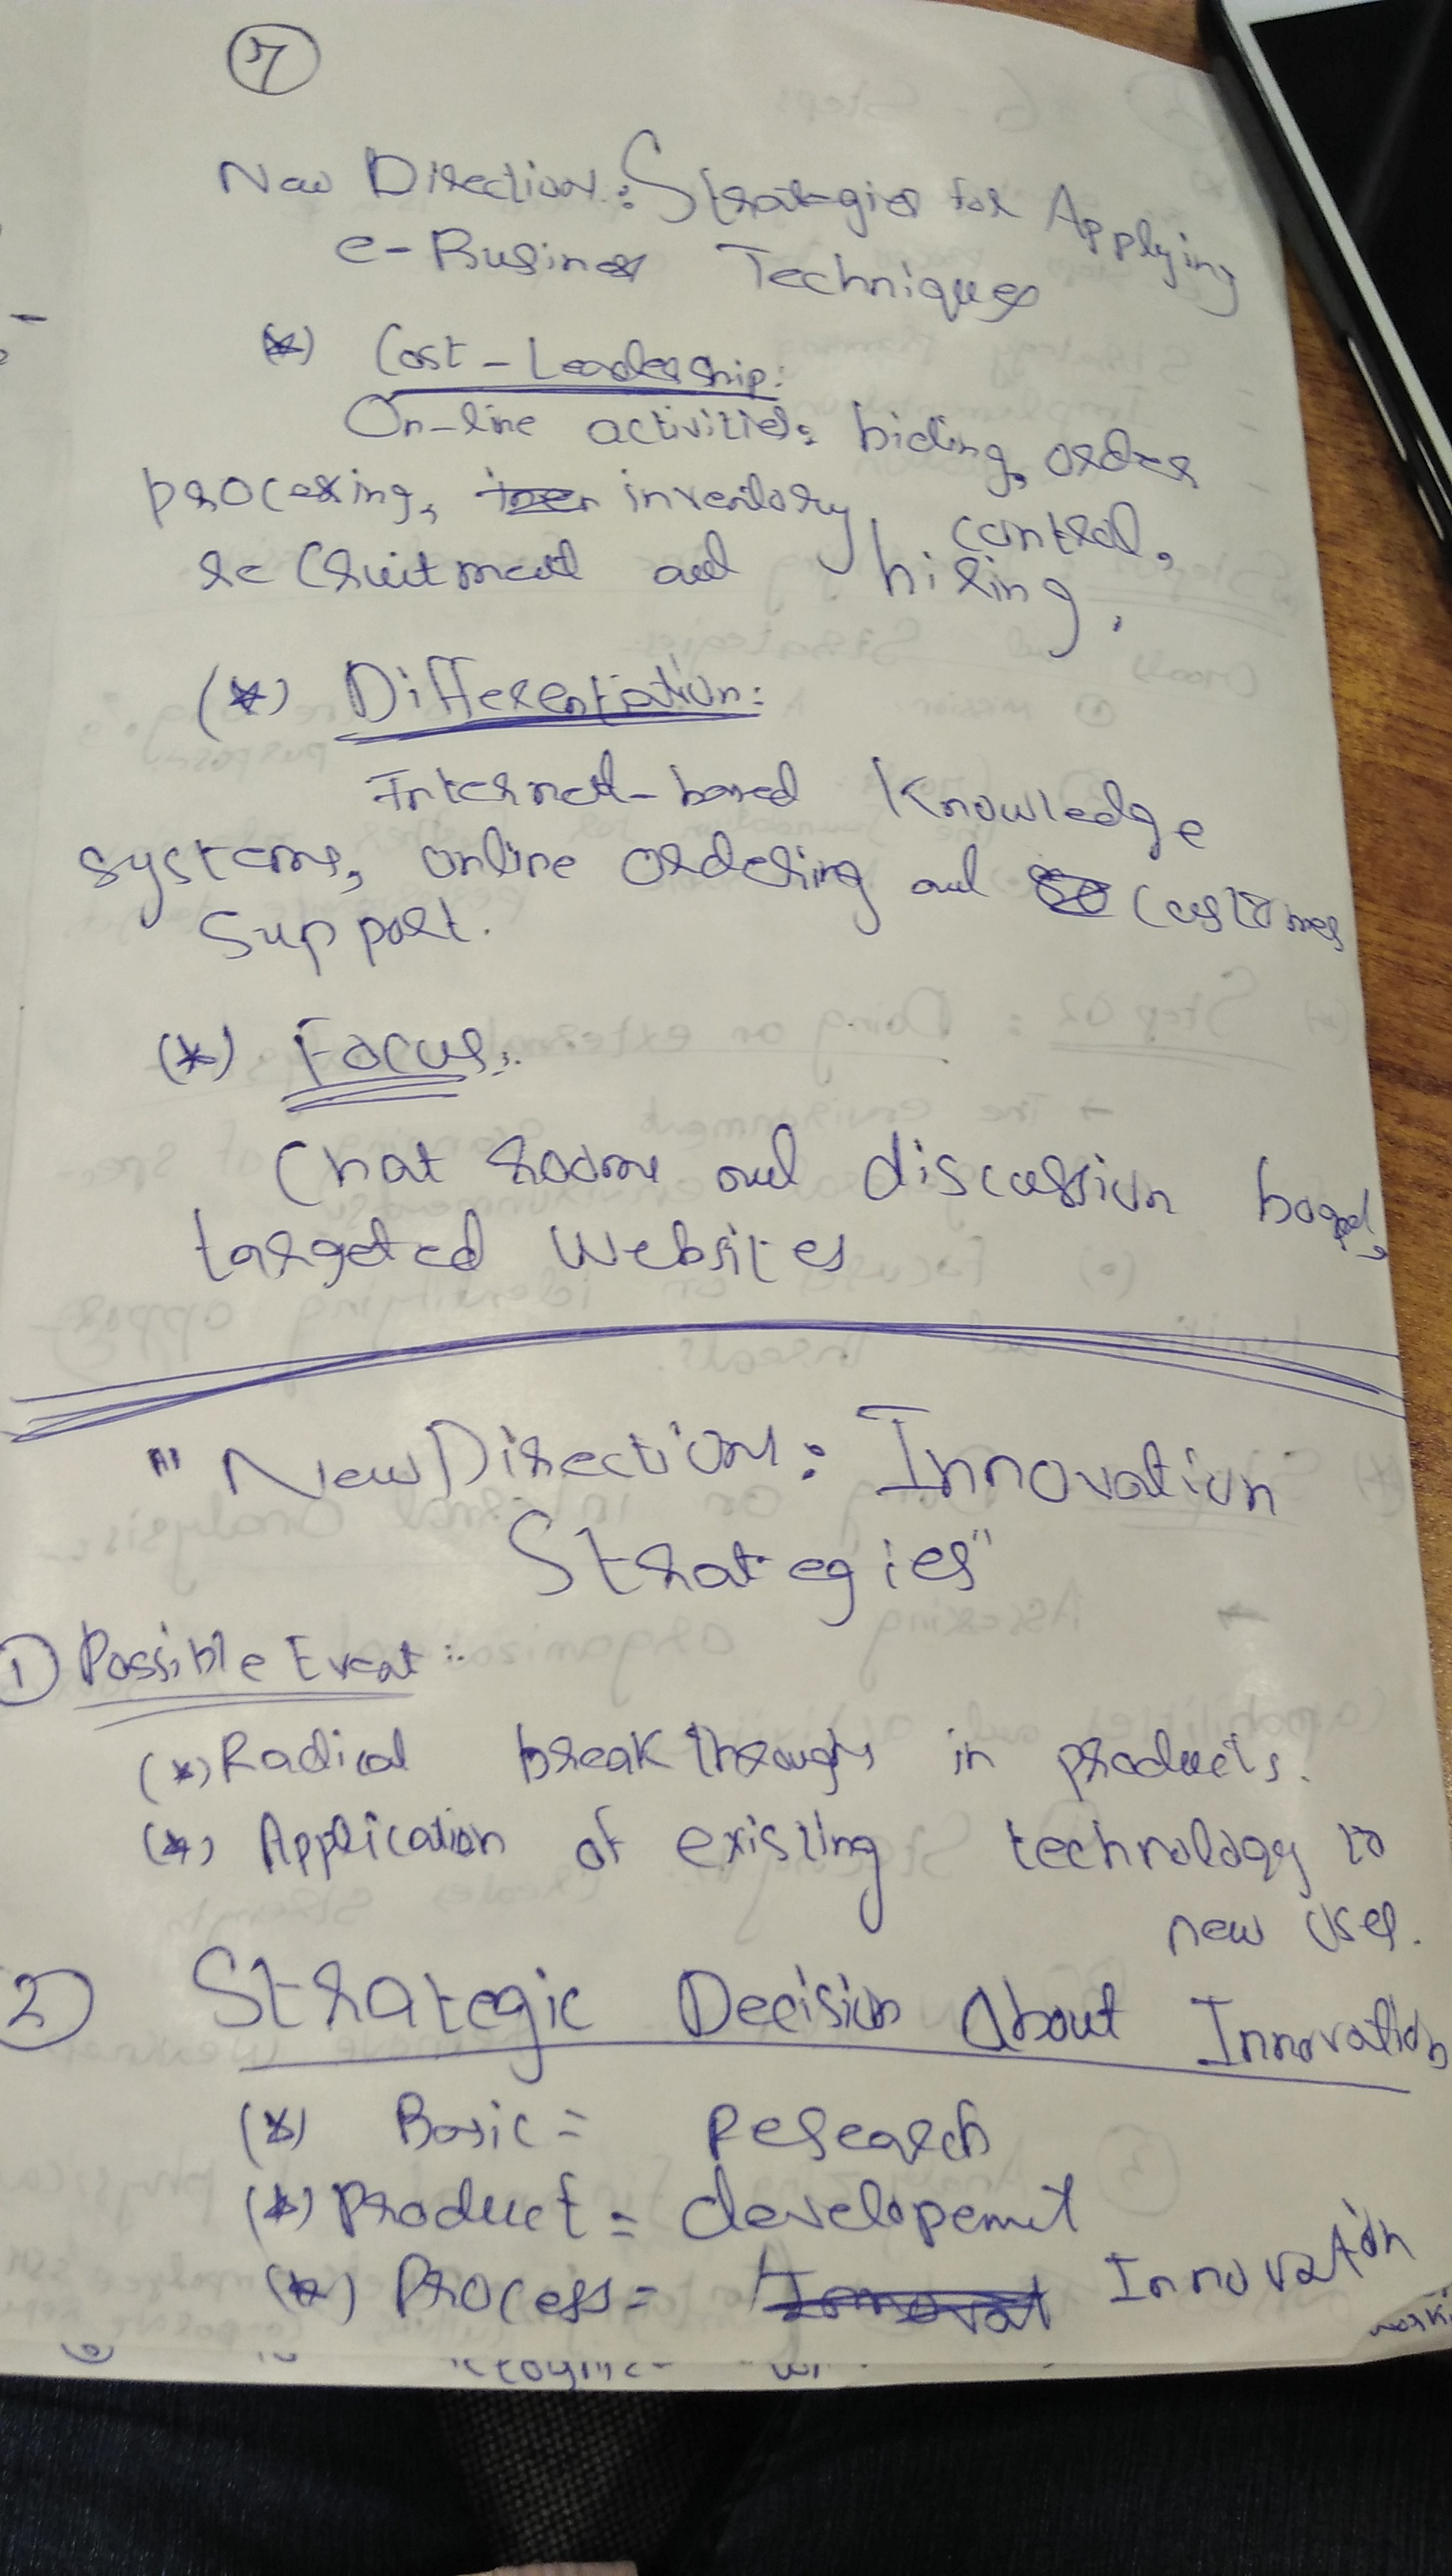 7
New Direction: Strategies for Applying
e-Business Techniques
(*) Cost-Leadership:
On-line activities: biding, order
processing, inventory control,
recruitment and hiring.
(*) Differentation:
Internet-based Knowledge
systems, online ordering and customer
support.
(*) Focus:
Chat rooms and discussion board,
targeted websites
"New Directions: Innovation
Strategies"
1 Possible Event:
(*) Radical breakthroughs in products.
(*) Application of existing technology to
new uses.
2 Strategic Decision About Innovation
(*) Basic = Research
(*) Product = developemnt
(*) Process = Innovation